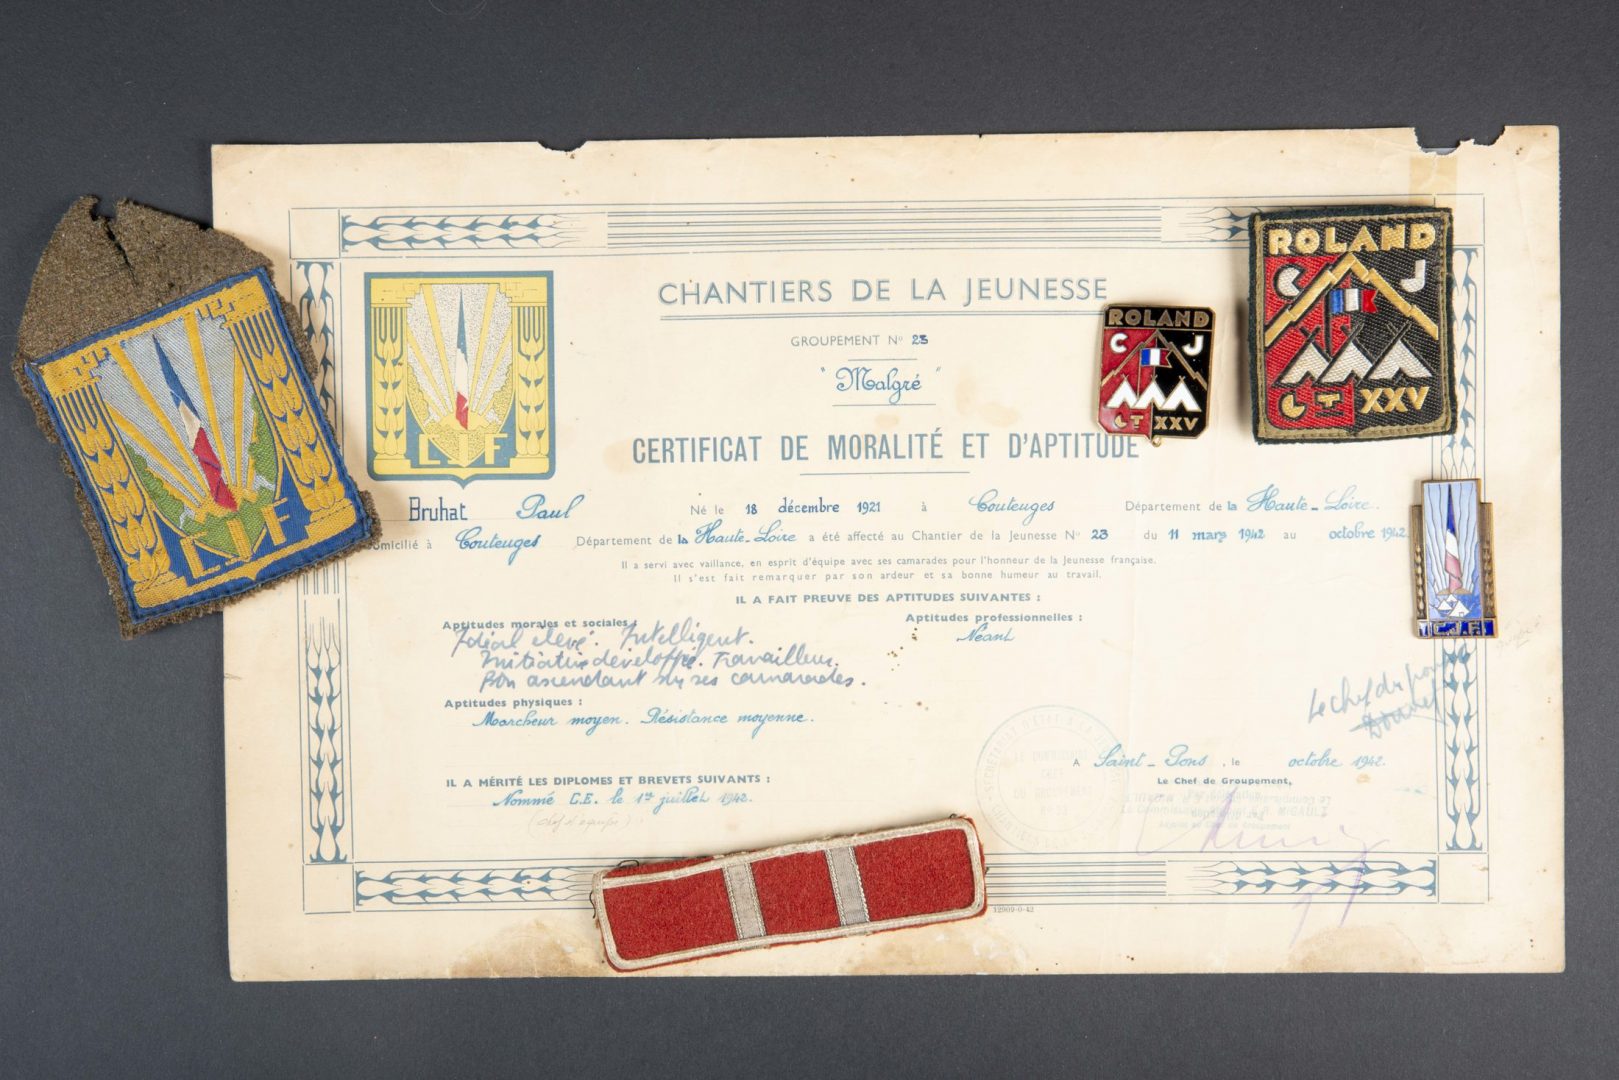 CHANTIERS DE LA JEUNESSE
GROUPEMENT Nº 23
"Malgré"
CERTIFICAT DE MORALITÉ ET D'APTITUDE
Bruhat Paul Né le 18 décembre 1921 à Couteuges Département de la Haute-Loire.
omicilié à Couteuges Département de la Haute-Loire a été affecté au Chantier de la Jeunesse Nº 23 du 11 mars 1942 au octobre 1942
Il a servi avec vaillance, en esprit d'équipe avec ses camarades pour l'honneur de la Jeunesse française.
Il s'est fait remarquer par son ardeur et sa bonne humeur au travail.
IL A FAIT PREUVE DES APTITUDES SUIVANTES :
Aptitudes morales et sociales :
Idéal élevé. Intelligent.
Initiative développée. Travailleur.
Bon ascendant sur ses camarades.
Aptitudes professionnelles :
Néant
Aptitudes physiques :
Marcheur moyen. Résistance moyenne.
IL A MÉRITÉ LES DIPLOMES ET BREVETS SUIVANTS :
Nommé C.E. le 1er juillet 1942.
(chef d'équipe)
Le chef du
A Saint-Pons, le octobre 1942.
Le Chef de Groupement,
12909-0-42
LIF
LIF
ROLAND
C J
GT XXV
ROLAND
C J
GT XXV
C.J.F.